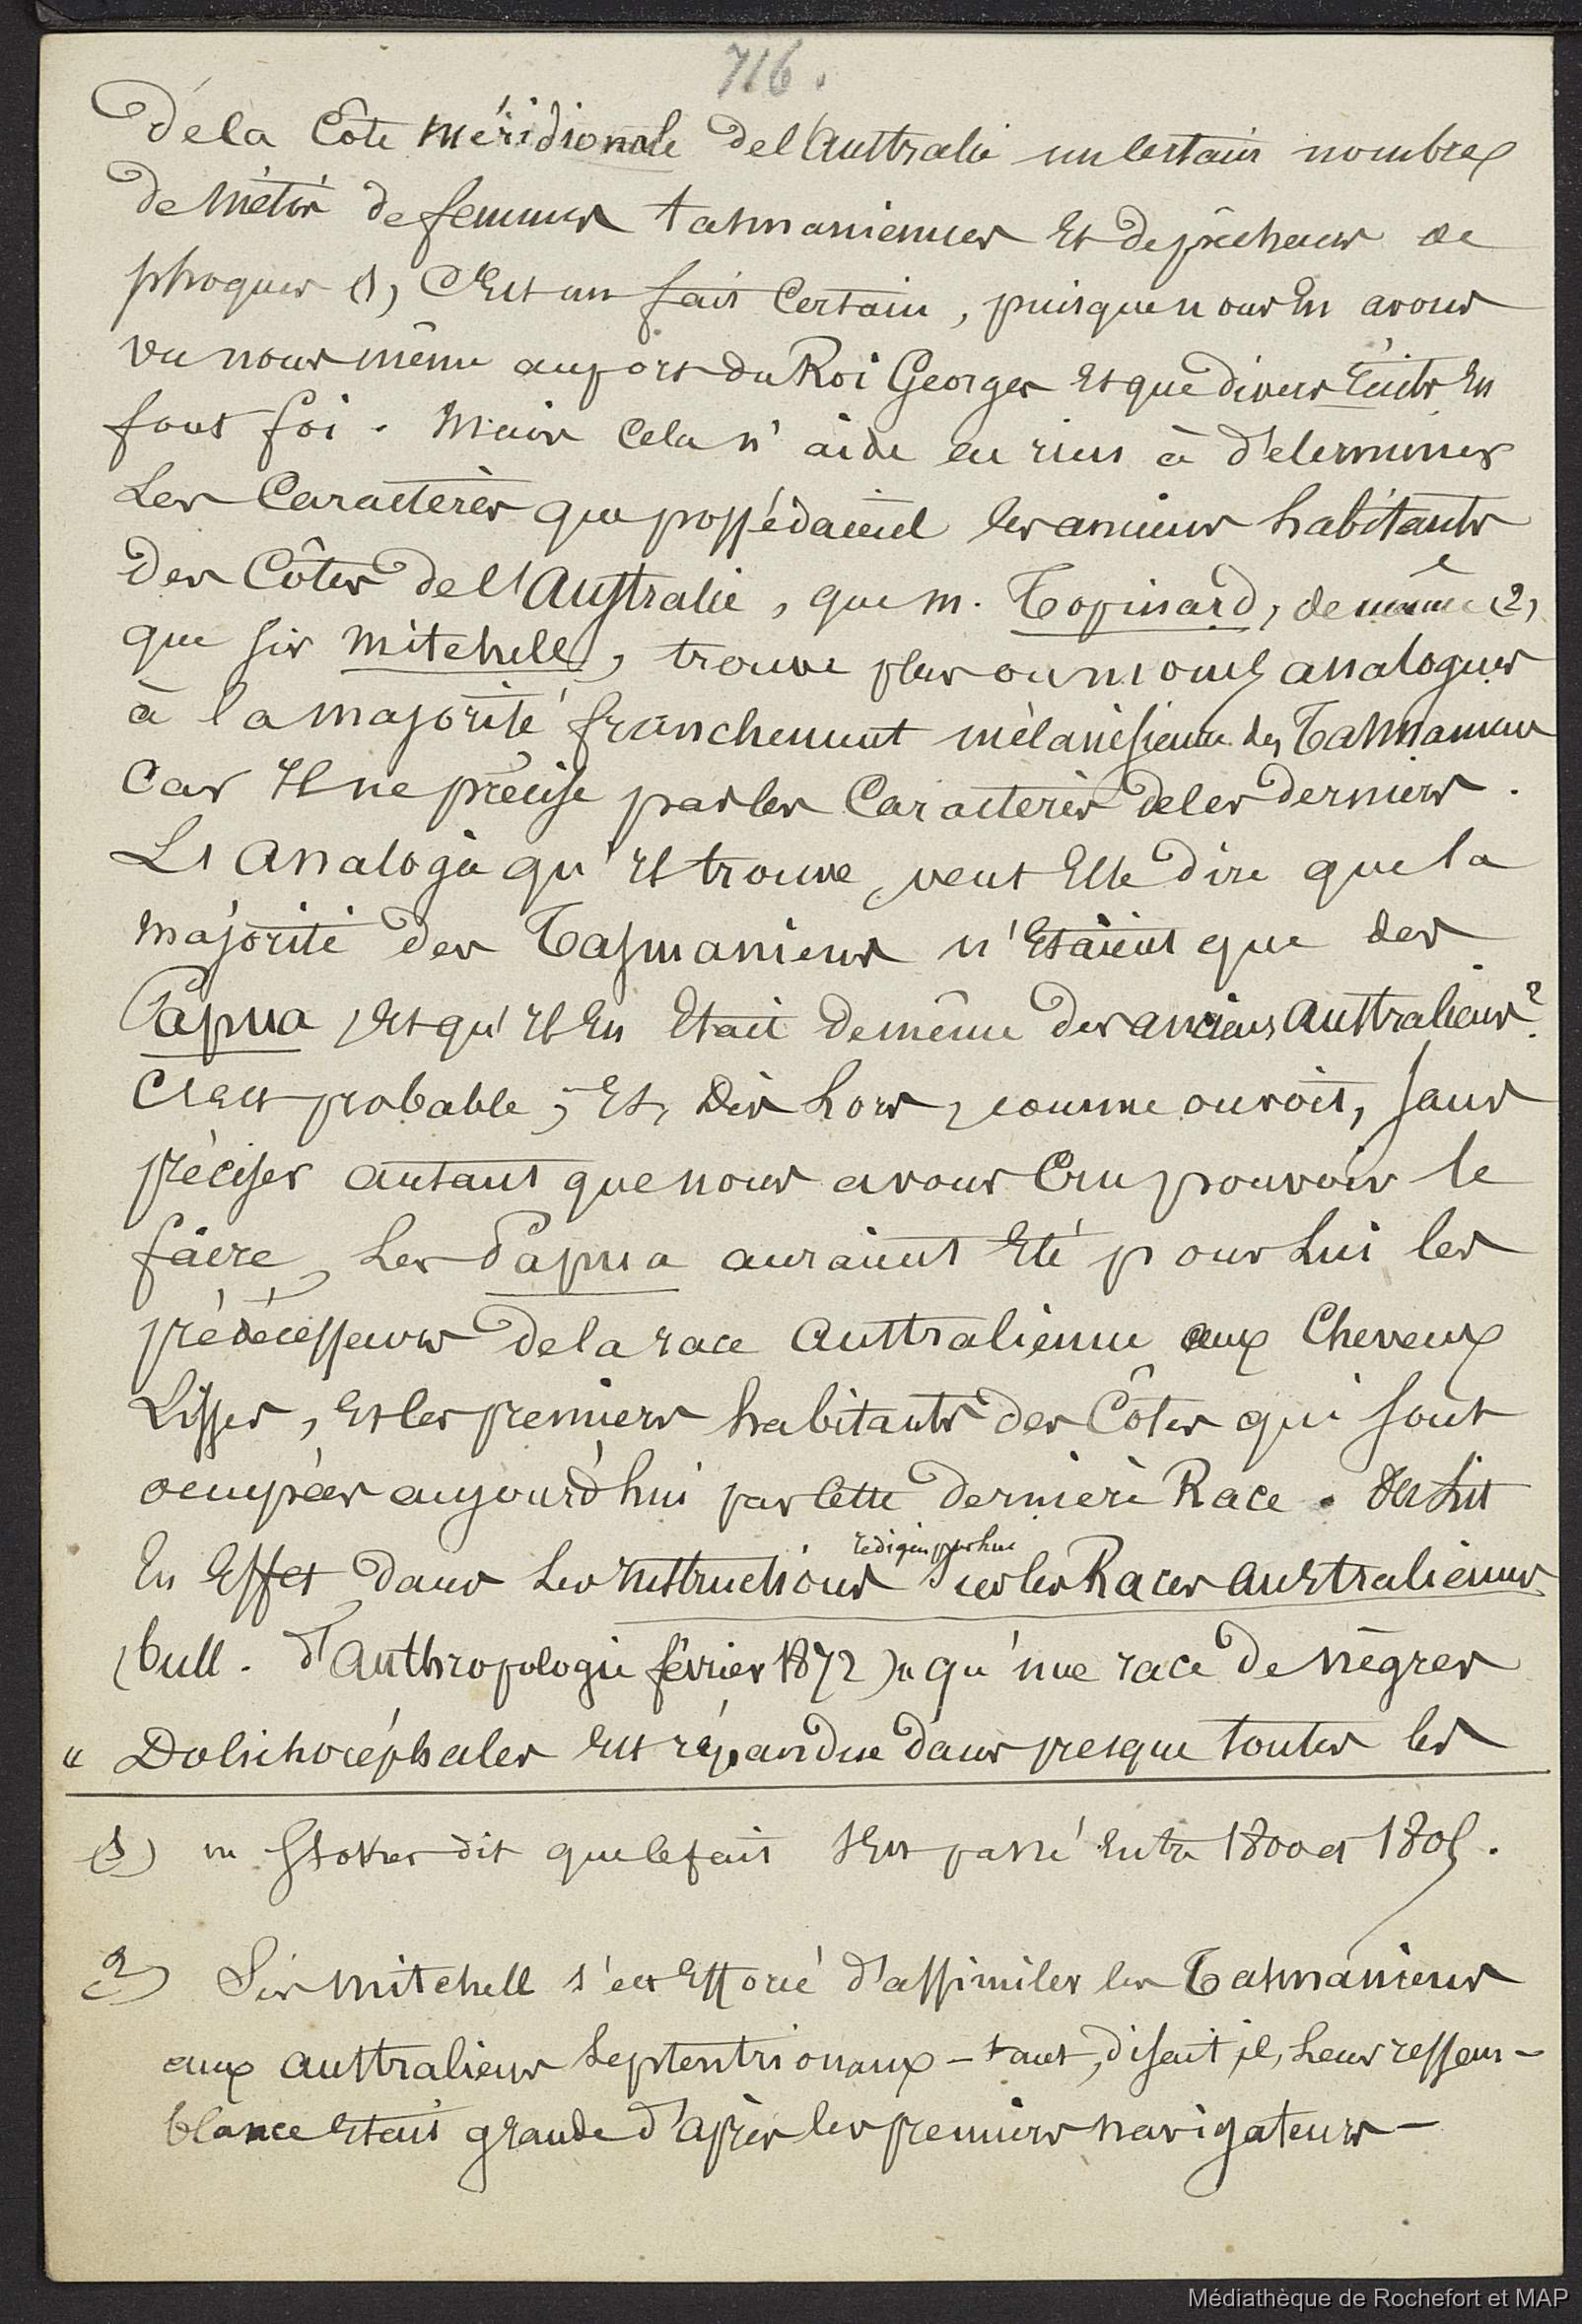 716.
De la Côte méridionale de l'Australie un certain nombre
de métis de femmes tasmaniennes et de pêcheurs de
phoques (1), C'est un fait certain, puisque nous en avons
vu nous même au port du Roi Georges et que divers écrits en
font foi. Mais cela n'aide en rien à déterminer
les Caractères que possédaient les anciens habitants
des Côtes de l'Australie, que m. Topinard, de même (2)
que sir Mitchell, trouve plus ou moins analogues
à la majorité franchement mélanésienne des Tasmaniens
Car Il ne précise pas les Caractères de ces derniers.
L'analogie qu'il trouve, veut elle dire que la
majorité des Tasmaniens n'étaient que des
Papua, et qu'il en était de même des anciens Australiens?
C'est probable; Et, dès lors, comme on voit, sans
préciser autant que nous avons cru pouvoir le
faire, les Papua auraient été pour lui les
prédécesseurs de la race Australienne aux Cheveux
Lisses, et les premiers habitants des Côtes qui sont
occupées aujourd'hui par cette dernière Race. Il dit
En Effet, dans les instructions rédigées par lui sur les Races Australiennes
(bull. d'anthropologie février 1872) « qu'une race de nègres
« Dolichocéphales est répandue dans presque toutes les
(1) m Stokes dit que le fait s'est passé entre 1800 et 1805.
(2) Sir Mitchell s'est efforcé d'assimiler les Tasmaniens
aux australiens septentrionaux – tant, disait il, leur ressem-
blance était grande d'après les premiers navigateurs –
Médiathèque de Rochefort et MAP